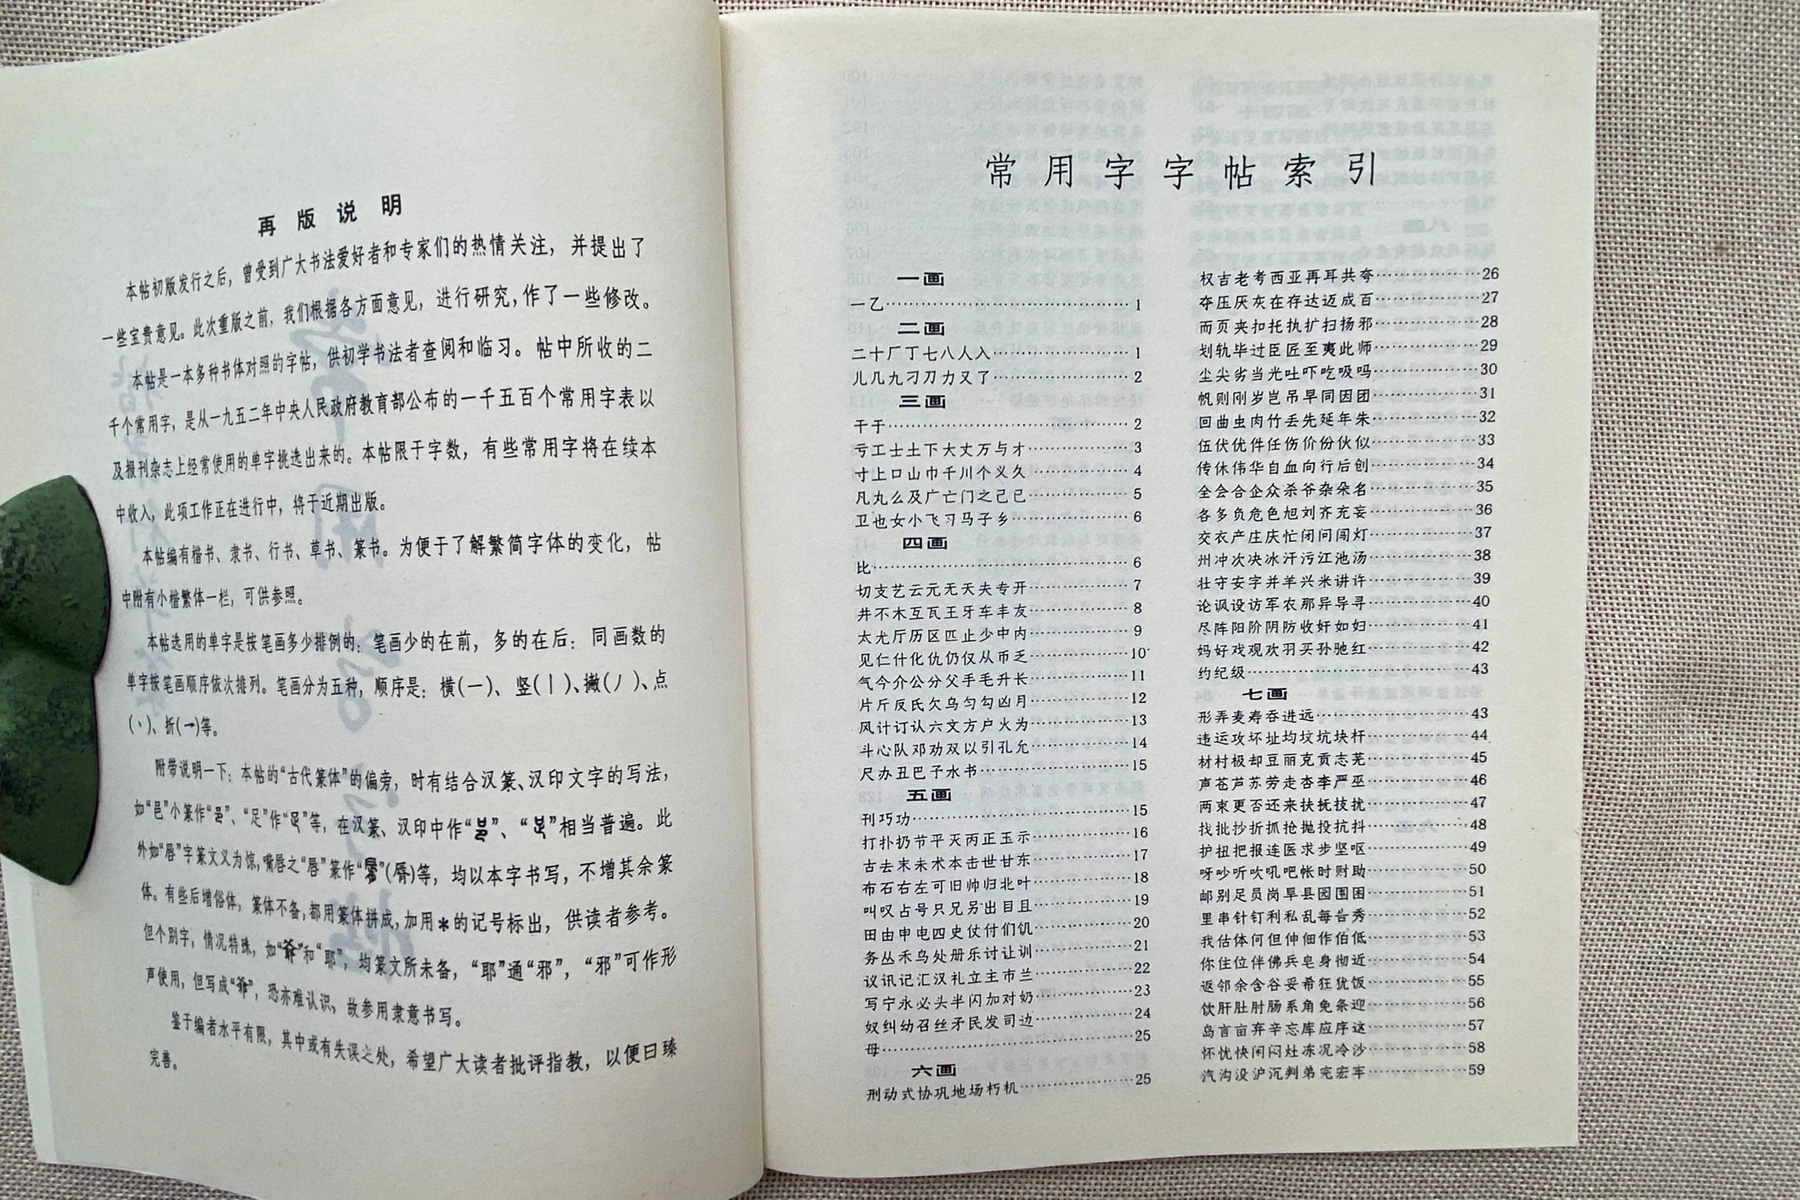 再版说明
本帖初版发行之后，曾受到广大书法爱好者和专家们的热情关注，并提出了
一些宝贵意见。此次重版之前，我们根据各方面意见，进行研究，作了一些修改。
本帖是一本多种书体对照的字帖，供初学书法者查阅和临习。帖中所收的二
千个常用字，是从一九五二年中央人民政府教育部公布的一千五百个常用字表以
及报刊杂志上经常使用的单字挑选出来的。本帖限于字数，有些常用字将在续本
中收入，此项工作正在进行中，将于近期出版。
本帖编有楷书、隶书、行书、草书、篆书。为便于了解繁简字体的变化，帖
中附有小楷繁体一栏，可供参照。
本帖选用的单字是按笔画多少排例的：笔画少的在前，多的在后：同画数的
单字按笔画顺序依次排列。笔画分为五种，顺序是：横(一)、竖(丨)、撇(丿)、点
(丶)、折(㇖)等。
附带说明一下：本帖的“古代篆体”的偏旁，时有结合汉篆、汉印文字的写法，
如“邑”小篆作“”、“足”作“”等，在汉篆、汉印中作“”、“”相当普遍。此
外如“唇”字篆文义为惊，嘴唇之“唇”篆作“”(脣)等，均以本字书写，不增其余篆
体。有些后增俗体，篆体不备，都用篆体拼成，加用＊的记号标出，供读者参考。
但个别字，情况特殊，如“爷”和“耶”，均篆文所未备，“耶”通“邪”，“邪”可作形
声使用，但写成“”，恐亦难认识，故参用隶意书写。
鉴于编者水平有限，其中或有失误之处，希望广大读者批评指教，以便日臻
完善。
常用字字帖索引
一画
一乙……1
二画
二十厂丁七八人入……1
儿几九刁刀力又了……2
三画
干于……2
亏工士土下大丈万与才……3
寸上口山巾千川个义久……4
凡丸么及广亡门之己已……5
卫也女小飞习马子乡……6
四画
比……6
切支艺云元无天夫专开……7
井不木互瓦王牙车丰友……8
太尤厅历区匹止少中内……9
见仁什化仇仍仅从币乏……10
气今介公分父手毛升长……11
片斤反氏欠乌匀勾凶月……12
风计订认六文方户火为……13
斗心队邓劝双以引孔允……14
尺办丑巴子水书……15
五画
刊巧功……15
打扑扔节平灭丙正玉示……16
古去末未术本击世甘东……17
布石右左可旧帅归北叶……18
叫叹占号只兄另出目且……19
田由申电四史仗付们饥……20
务丛禾鸟处册乐讨让训……21
议讯记汇汉礼立主市兰……22
写宁永必头半闪加对奶……23
奴纠幼召丝矛民发司边……24
母……25
六画
刑动式协巩地场朽机……25
权吉老考西亚再耳共夸……26
夺压厌灰在存达迈成百……27
而页夹扣托执扩扫扬邪……28
划轨毕过臣匠至夷此师……29
尘尖劣当光吐吓吃吸吗……30
帆则刚岁岂吊早同因团……31
回曲虫肉竹丢先延年朱……32
伍伏优件任伤价份伙似……33
传休伟华自血向行后创……34
全会合企众杀爷杂朵名……35
各多负危色旭刘齐充妄……36
交衣产庄庆忙闭问闯灯……37
州冲次决冰汗污江池汤……38
壮守安字并羊兴米讲许……39
论讽设访军农那异导寻……40
尽阵阳阶阴防收奸如妇……41
妈好戏观欢羽买孙驰红……42
约纪级……43
七画
形弄麦寿吞进远……43
违运攻坏址均坟坑块杆……44
材村极却豆丽克贡志芜……45
声苍芦苏劳走杏李严巫……46
两束更否还来扶抚技扰……47
找批抄折抓抢抛投抗抖……48
护扭把报连医求步坚呕……49
呀吵听吹吼吧帐时财助……50
邮别足员岗旱县园围困……51
里串针钉利私乱每告秀……52
我估体何但伸佃作伯低……53
你住位伴佛兵皂身彻近……54
返邻余含谷妥希狂犹饭……55
饮肝肚肘肠系角免条迎……56
岛言亩弃辛忘库应序这……57
怀忧快闲闷灶冻况冷沙……58
汽沟没沪沉判弟完宏牢……59